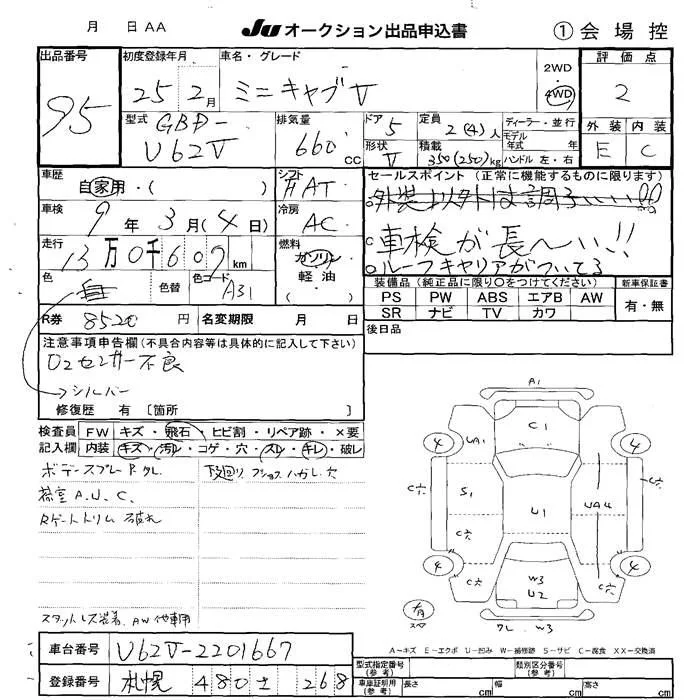 月 日 AA JU オークション出品申込書 ① 会場控
出品番号 95
初度登録年月 25年2月
車名・グレード ミニキャブV
2WD
4WD
評価点 2
外装 E 内装 C
型式 GBD-U62V
排気量 660 CC
ドア 5
形状 V
定員 2(4)人
積載 350(250)kg
ディーラー・並行
モデル年式 年
ハンドル 左・右
車歴 自家用・( )
シフト FAT
車検 9年3月(4日)
冷房 AC
走行 13万0千607km
燃料 ガソリン
軽油
( )
色 白 色替 色コード A31
R券 8520円 名変期限 月 日
セールスポイント(正常に機能するものに限ります)
外装以外は調子いい!!
車検が長〜い!!
ルーフキャリアがついてる
装備品(純正品に限り○をつけてください) 新車保証書
PS PW ABS エアB AW
SR ナビ TV カワ
有・無
後日品
注意事項申告欄(不具合内容等は具体的に記入して下さい)
O2センサー不良
→シルバー
修復歴 有 〔箇所 〕
検査員 FW キズ・飛石・ヒビ割・リペア跡・×要
記入欄 内装 キズ・汚れ・コゲ・穴・スレ・キレ・破レ
ボデースプレー P クレ. 下廻り
荷室 A.U.C.
Rゲートトリム 破れ
スタットレス装着、AW他車用
A1
C1
4 4
UA1
C穴 S1 U1 UA4
C穴
4 4
C穴 W3 C穴
U2
有
スペ
クレ W3
A-キズ E-エクボ U-凹み W-補修跡 S-サビ C-腐食 XX-交換済
車台番号 U62V-2201667
登録番号 札幌 480 268
型式指定番号(参考) 類別区分番号(参考)
車庫証明用(参考) 長さ cm 幅 cm 高さ cm